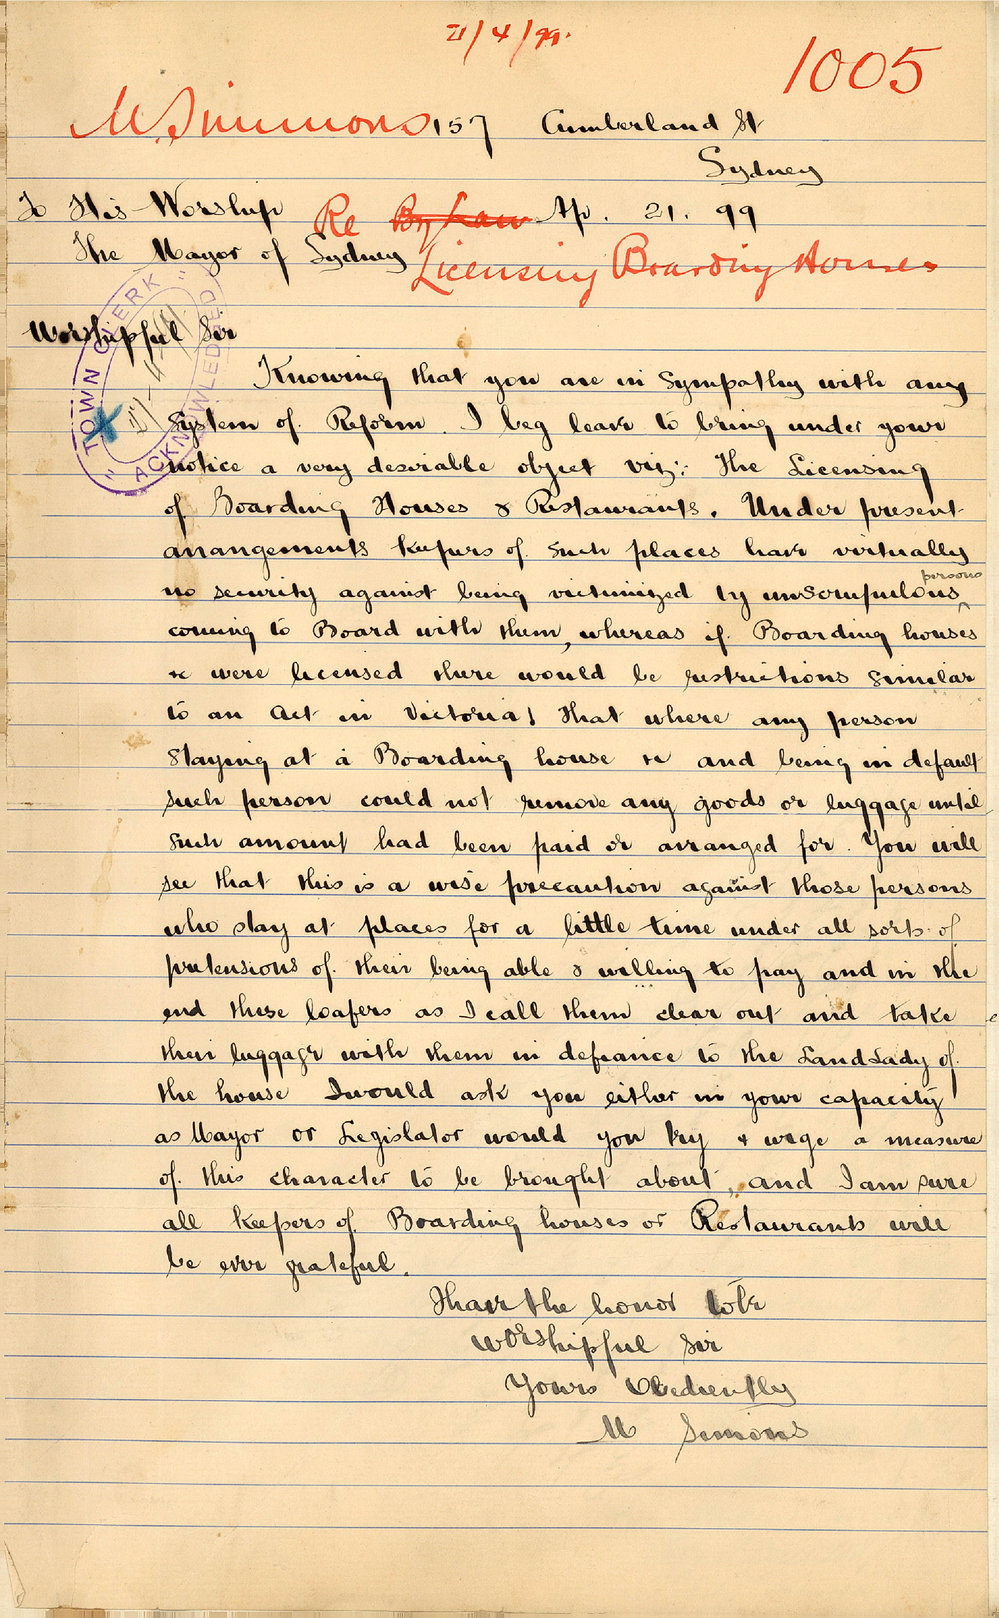 21/4/99.
1005
M. Simmons 157 Cumberland St
Sydney
To His Worship Re By Law Ap. 21. 99
The Mayor of Sydney Licensing Boarding Homes
TOWN CLERK
"ACKNOWLEDGED"
Worshipful Sir
Knowing that you are in sympathy with any
System of Reform. I beg leave to bring under your
notice a very desirable object viz: The Licensing
of Boarding Houses & Restaurants. Under present
arrangements keepers of such places have virtually
persons
no security against being victimized by unscrupulous
coming to Board with them, whereas if Boarding houses
&c were licensed there would be restrictions similar
to an Act in Victoria! That where any person
staying at a Boarding house &c and being in default
such person could not remove any goods or luggage until
such amount had been paid or arranged for. You will
see that this is a wise precaution against those persons
who stay at places for a little time under all sorts of
pretensions of their being able & willing to pay and in the
end these loafers as I call them clear out and take
their luggage with them in defiance to the LandLady of
the house I would ask you either in your capacity
as Mayor or Legislator would you try & urge a measure
of this character to be brought about, and I am sure
all keepers of Boarding houses or Restaurants will
be ever grateful.
I have the honor to be
Worshipful Sir
Yours Obediently
M Simons